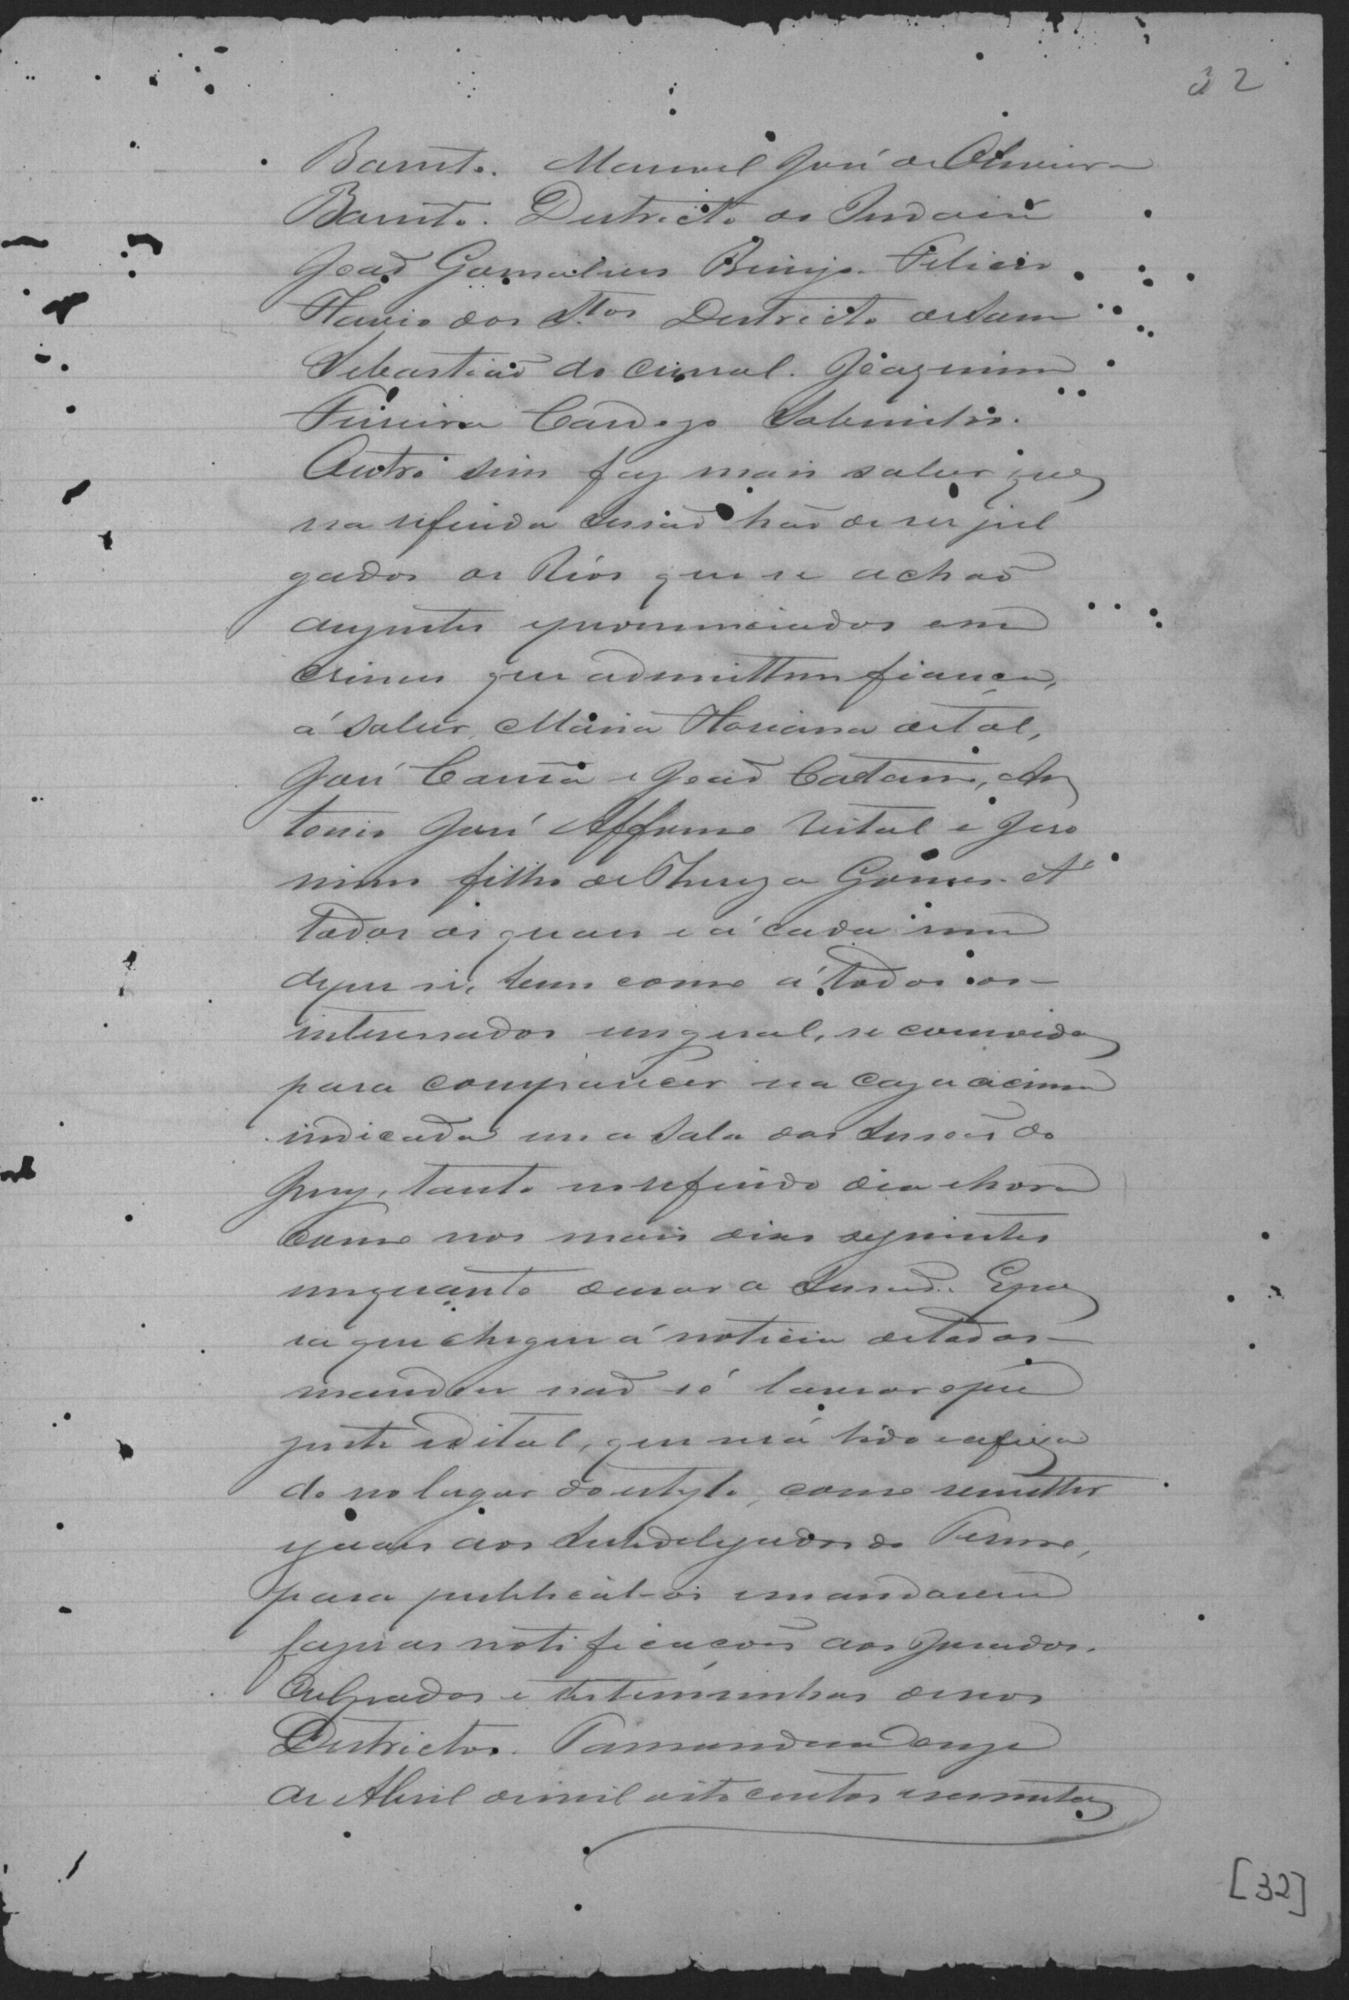 32
Barreto. Manoel José de Oliveira
Barreto. Destricto de
João Gonsalves Felicio
Flavio dos Stos Destricto de Sam
Sebastião do Curral. Joaquim
Ferreira Cardozo
Outro sim faz mais saber que
na referida sessão hão de ser jul
gados os Réos que se achão
auzentes e pronunciados em
crimes que admittem fiança,
á saber, Maria Floriana de tal,
José Corrêa e João Caetano, An
tonio José Affonso Vital e Jero
nimo filho de Thereza Gomes. A
todos os quaes e á cada um
de per si, bem como á todos os
interessados em geral, se convida
para comparecer na caza acima
indicada em a sala das sessões do
Jury, tanto no referido dia e hora
como nos mais dias seguintes
emquanto durar a sessão. E pa
ra que chegue á noticia de todos
mandou não só lavrar o pre
zente edital, que será lido e afixa
do no lugar do estylo, como remetter
iguaes aos Subdelegados do Termo,
para publical-os e mandarem
fazer as notificações aos Jurados.
Culpados e testemunhas de seos
Destrictos. Tamandua onze
de Abril de mil oito centos e
[32]